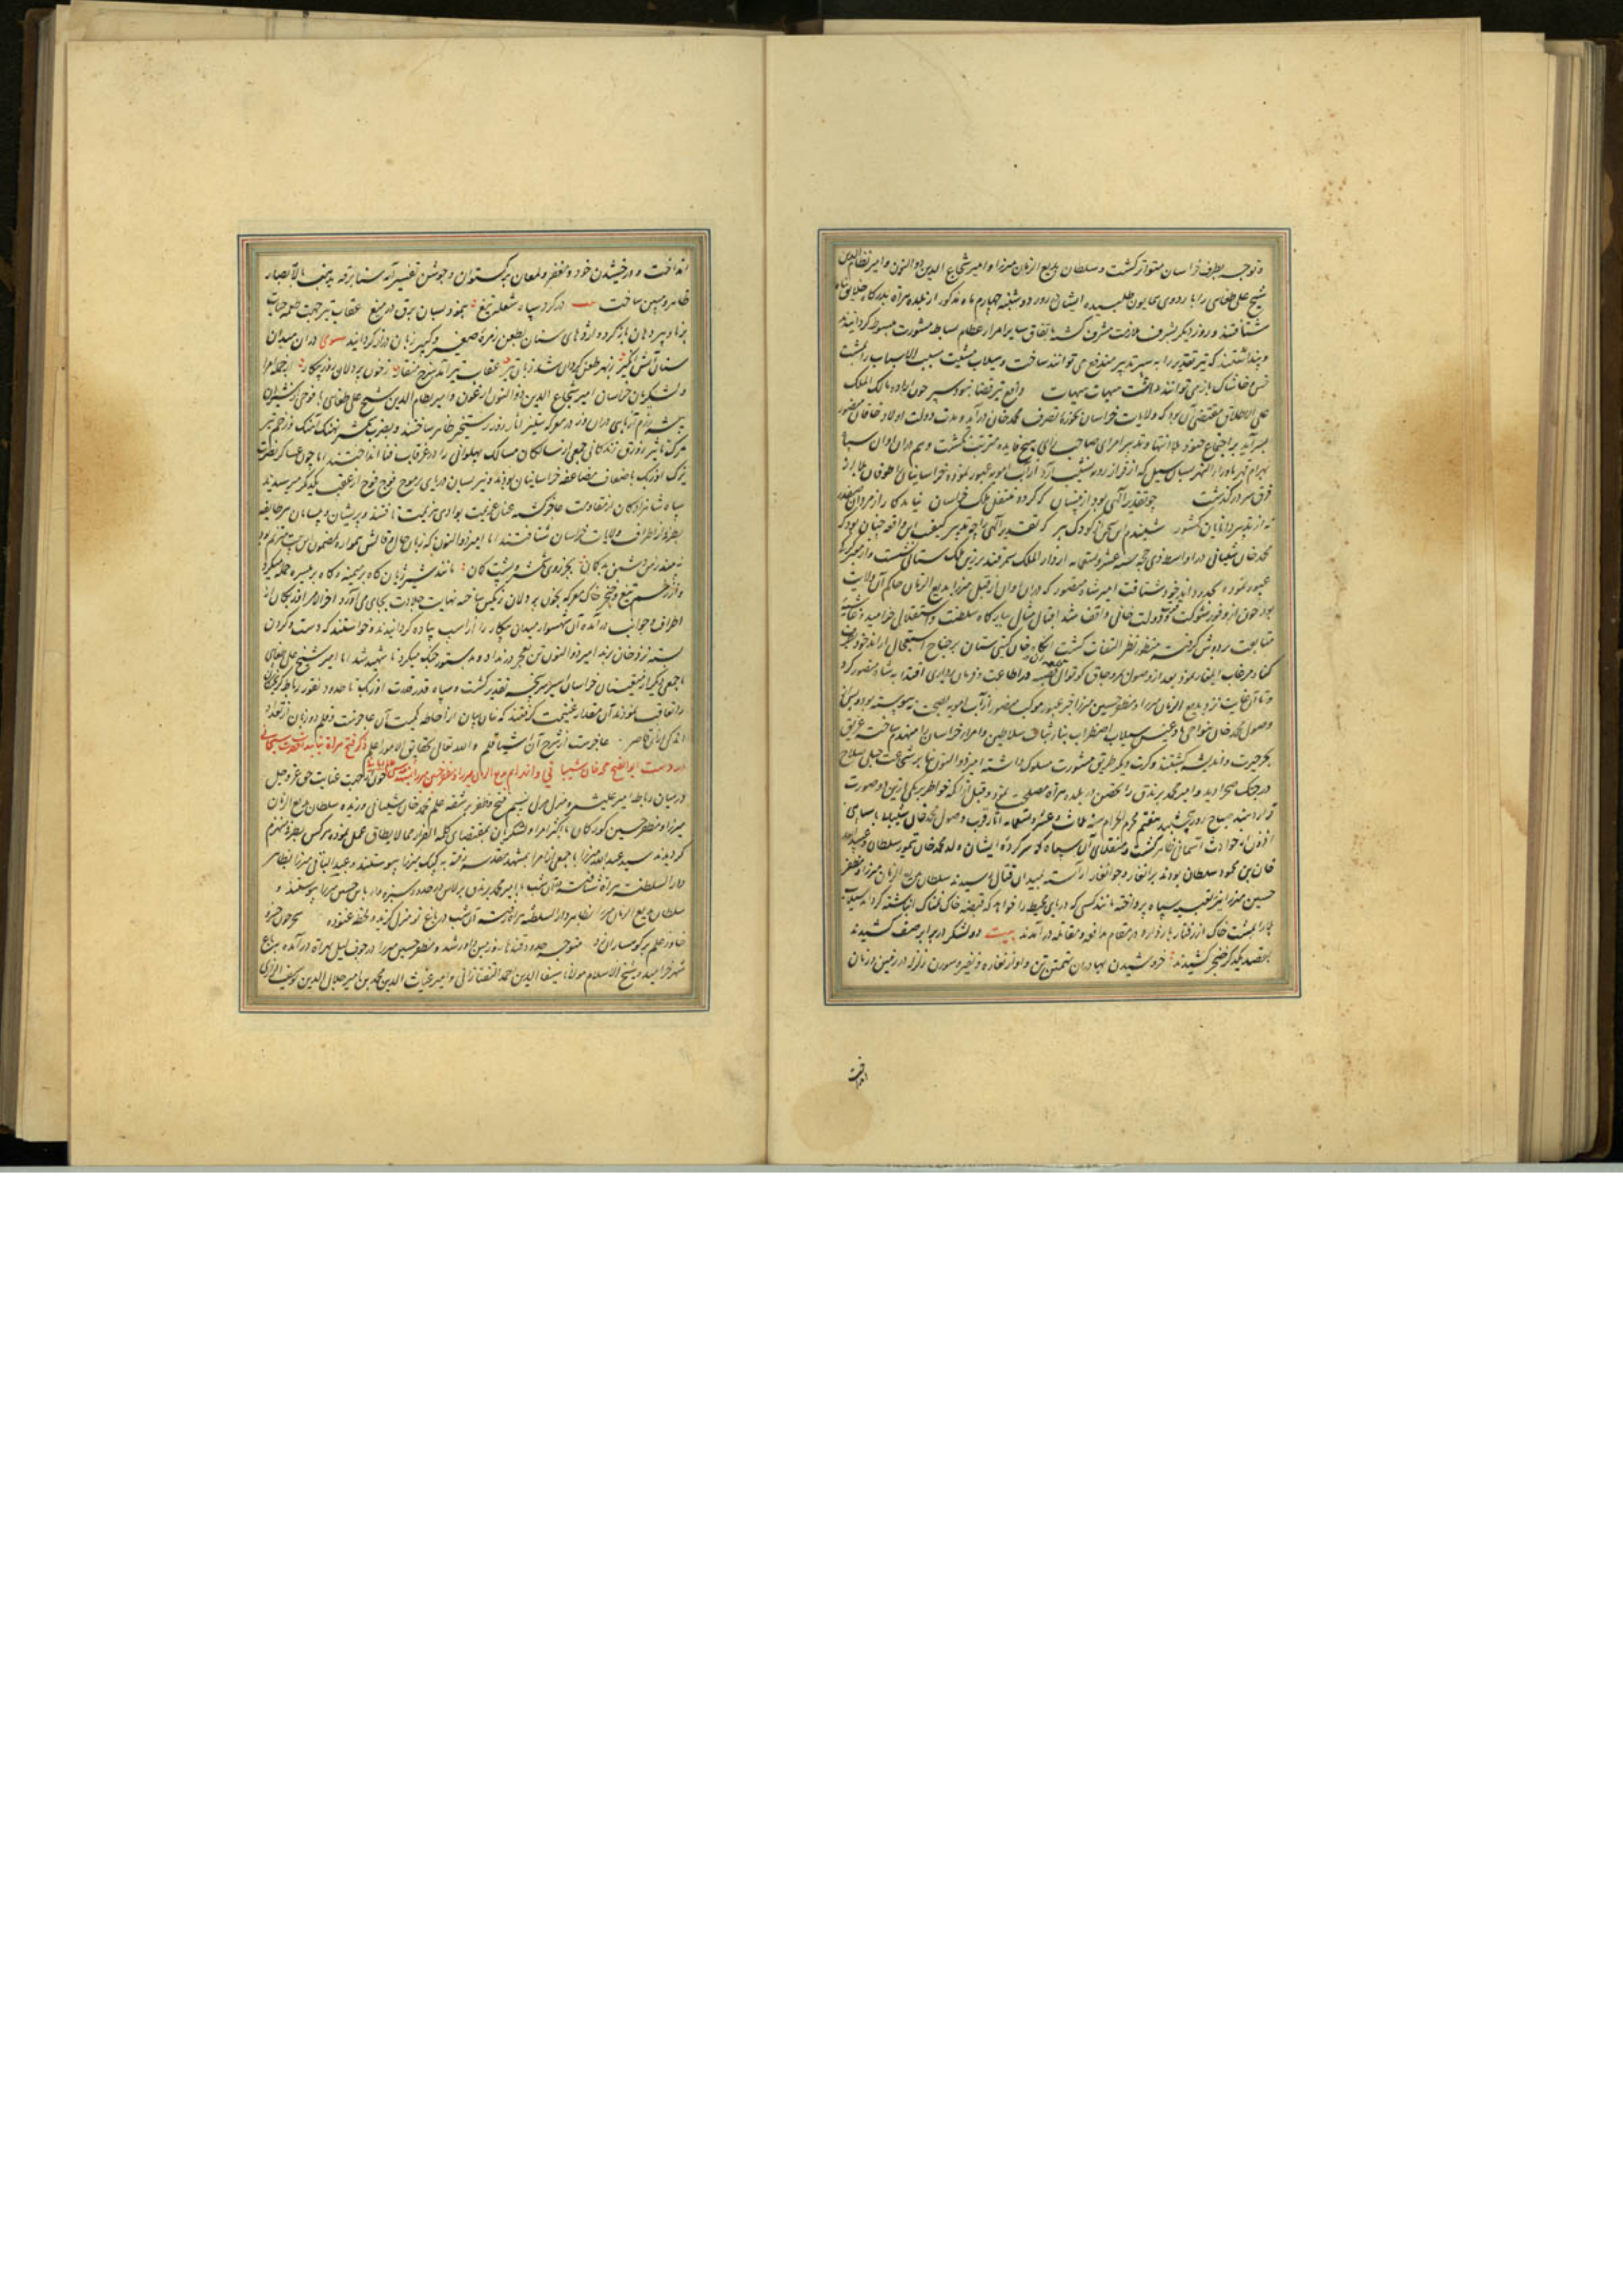 و توجه بطرف خراسان متواتر گشت و سلطان بدیع الزمان میرزا و امیر شجاع الدین ذوالنون و امیر نظام الدین
شیخ علی طغای را باردوی همایون طلبیده ایشان روز دوشنبه چهارم ماه مذکور از بلده هراة بدرگاه
شتافتند و روز دیگر بشرف ملازمت مشرف گشته باتفاق سایر امراء عظام بساط مشورت مبسوط گردانیدند
و پنداشتند که تیر تقدیر را به سپر تدبیر مندفع می توانند ساخت و سیلاب مشیت مسبب الاسباب را بمشت
خس و خاشاک باز می توانند داشت هیهات هیهات دافع تیر قضا نبود سپر چون اراده مالک الملک
علی الاطلاق مقتضی آن بود که ولایات خراسان بحوزه تصرف محمد خان درآید و مدت دولت اولاد خاقان منصور
بسرآید بر اجتماع جنود بلا انتها و تدبیر امرای صاحب رای هیچ فایده مترتب نگشت و هم دران اوان سپاه
بهرام قهر ماوراء النهر بسان سیل که از فراز رو به نشیب آرد از آب امویه عبور نموده خراسانیان را طوفان بلا از
فرق سر درگذشت چو تقدیر الهی بود از نیسان که گردد منتقل ملک خراسان نیاید کار از مردان
نه از تدبیر دانایان کشور شنیدم این سخن از کودک و پیر که تقدیر الهی را چه تدبیر کیفیت این واقعه چنان بود که
محمد خان شیبانی در اواسط ذی حجه سنه عشر و تسعمایه از دار الملک سمرقند بر زین ملک ستانی نشست و از جیحون
عبور نموده بحدود اندخود شتافت امیر شاه منصور که دران اوان از قبل میرزا بدیع الزمان حاکم آن ولایت
بود چون از وفور شوکت دولت خانی واقف شد اقبال مثال ببارگاه سلطنت و استقلال خرامید و غاشیه
متابعت بردوش گرفته منظور نظر التفات گشت خان گیتی ستان بر جناح استعجال از اندخود بطرف
کنار مرغاب ایلغار نمود بعد از وصول
تا آن غایت نزد بدیع الزمان میرزا و مظفر حسین میرزا خبر عبور موکب منصور از آب امویه بصحت نپیوسته بود
وصول محمد خان بنواحی بادغیس سیلاب اضطراب بناء ثبات سلاطین و امراء خراسان را منهدم ساخت غریق
بحر حیرت و اندیشه گشتند و کرت دیگر طریق مشورت مسلوک داشته امیر ذوالنون بنا بر شجاعت جبلی صلاح
در جنک صحرا دید و امیر محمد برندق را تحصن در بلده هراة مصلحت نمود و قبل از آنکه خواطر بر یکی ازین دو صورت
قرار یابد صباح روز پنجشنبه هفتم محرم الحرام سنه ثلث و عشر و تسعمایه آثار قرب وصول محمد خان شیبانی با سپاهی
افزون از حوادث آسمانی ظاهر گشت و منقلای آن سپاه که سرکرده ایشان ولد محمد خان تیمور سلطان و عبید الله
خان بن محمود سلطان بودند برانغار و جوانغار آراسته بمیدان قتال رسیدند سلطان بدیع الزمان میرزا و مظفر
حسین میرزا نیز بتعبیه سپاه پرداخته مانند کسی که دریای محیط را خواهد که بقبضه خاک نمناک انباشته گرداند
بمشت خاک از رفتار باز دارد در مقام مدافعه و مقاتله درآمدند بیت دو لشکر در برابر صف کشیدند
بقصد یکدگر خنجر کشیدند خروشیدن بهادران تهمتن تن و آواز نقاره و نفیر و سورن زلزله در زمین و زمان
انداخت
انداخت و درخشیدن خود و مغفر و لمعان برگستوان و جوشن تفسیر آیه سنا برقه یذهب بالابصار
ظاهر و مبین ساخت در گرد سپاه شعله تیغ بنمود بسان برق در میغ عقاب تیر جهت طعمه
سنان آتش انگیز از بهر طعن گردان شد زبان تیز عقاب تیر آمد سرخ منقار ز خون پردلان روز پیکار از جمله امرا
و لشکریان خراسان امیر شجاع الدین ذوالنون ارغون و امیر نظام الدین شیخ علی طغای با فوجی از شیران
بیشه رزم آزمای دران روز در معرکه ستیز آثار روز رستخیز ظاهر ساختند و بضرب شمشیر نهنگ آهنگ و زخم تیر
مرگ تاثیر زورق زندگانی جمعی از سالکان مسالک پهلوانی را در غرقاب فنا انداختند اما چون عساکر نصرت
اوزبک باضعاف مضاعف خراسانیان بودند و نیز بسان دریای پرموج فوج فوج از عقب یکدیگر میرسیدند
سپاه شاهزادگان از مقاومت عاجز گشته عنان عزیمت بوادی هزیمت تافتند و پریشان و پشیمان هر طایفه
بطرفی از اطراف ولایات خراسان شتافتند اما امیر ذوالنون که زبان حال و قالش همواره بمضمون این بیت مترنم بود
نه بیند زمن دشمن بدگمان بجز روی شمشیر و پشت کمان مانند شیر ژیان گاه بر میمنه و گاه بر میسره حمله میکرد
و از زخم تیغ و خنجر خاک معرکه بخون پردلان رنگین ساخته نهایت جلادت بجای می آورد آخر الامر اوزبکان از
اطراف و جوانب درآمده آن شهسوار میدان پیکار را از اسب پیاده گردانیدند و خواستند که دست و گردن
بسته نزد خان برند امیر ذوالنون تن بعجز در نداد و بدستور جنگ میکرد تا شهید شد اما امیر شیخ علی طغای
با جمعی دیگر از متعینان خراسان اسیر سرپنجه تقدیر گشت و سپاه قدر قدرت اوزبک تا حدود
را تعاقب نمودند آن مقدار غنیمت گرفتند که بنان بیان از احاطه کمیت آن عاجزست و قلم دو زبان از تعداد
اندکی از آن قاصر عاجزست از شرح آن اشیا قلم و الله تعالی بحقایق الامور اعلم ذکر فتح هراة بتایید حضرت سبحانی
بر دست ابو الفتح محمد خان شیبانی و انهزام بدیع الزمان میرزا و مظفر حسین میرزا چون از مهب عنایت حق عز و جل
در میان رباط امیر علیشیر و مرل نسیم فتح و ظفر بر شقه علم محمد خان شیبانی وزیده سلطان بدیع الزمان
میرزا و مظفر حسین کورکان با اکثر امرا و لشکریان بمقتضای کلمه الفرار مما لا یطاق عمل نموده هر کس بطرفی منهزم
گردیدند سید عبدالله میرزا با جمعی از امرا بمشهد مقدسه رفته به کپک میرزا پیوستند و عبد الباقی میرزا بظاهر
دار السلطنه هراة شتافته همان شب با امیر محمد برندق برلاس در حدود سبزه وار بابن حسین میرزا پیوستند و
سلطان بدیع الزمان میرزا بظاهر دار السلطنه هراة رفته آن شب در باغ نو منزل گزید و لحظه غنوده سحر چون خسرو
خاور علم بر کوهساران زد متوجه حدود قندهار و زمین داور شد و مظفر حسین میرزا در جوف لیل بهراة درآمده بباغ
شهر خرامید و شیخ الاسلام مولانا سیف الدین احمد التفتازانی و امیر غیاث الدین محمد بن امیر جلال الدین یوسف الرازی